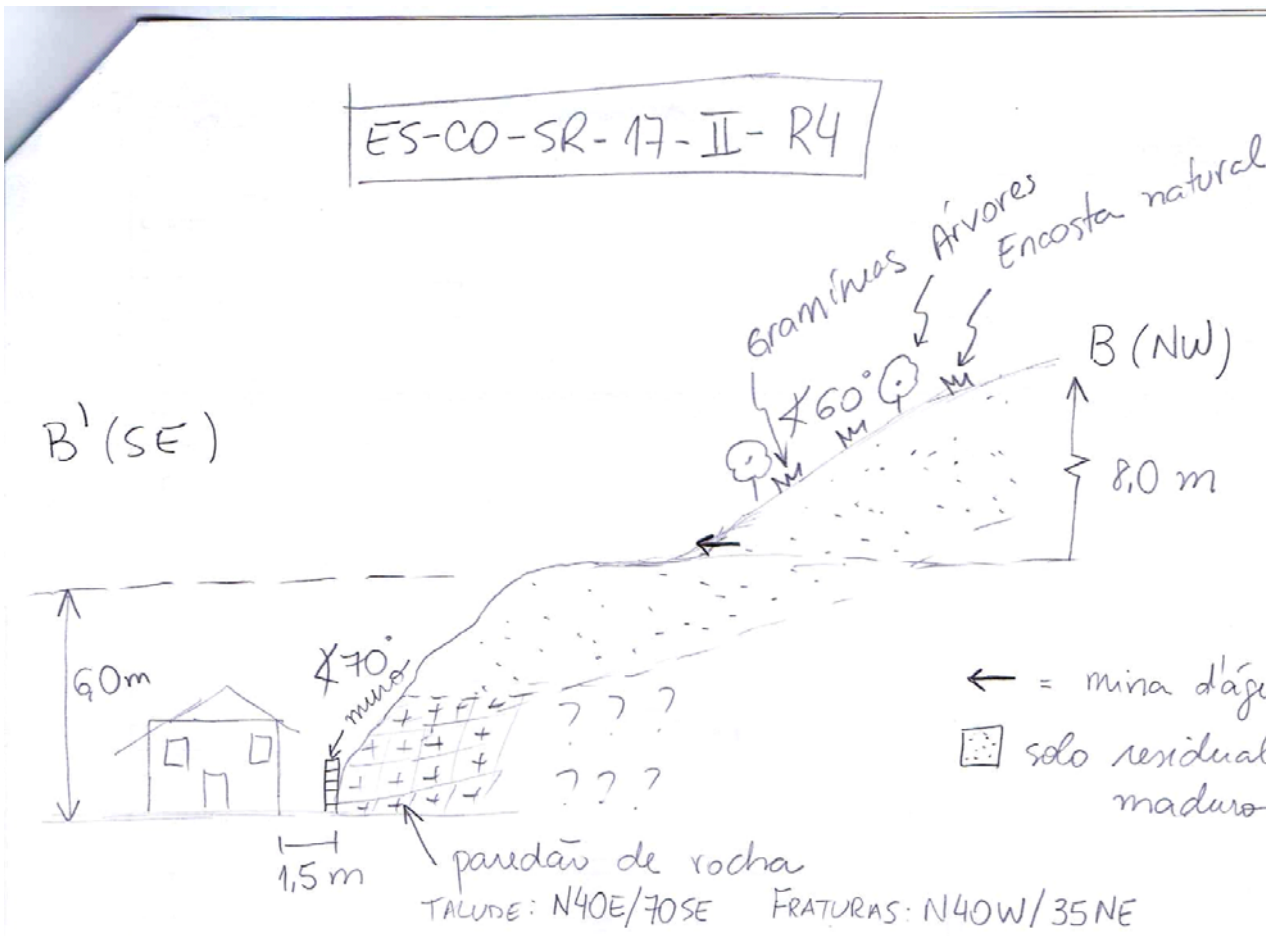 ES-CO-SR-17-II-R4
Gramíneas
Árvores
Encosta natural
∡60°
B (NW)
B' (SE)
8,0 m
6,0m
∡70°
muro
← = mina d'águ
solo residual
maduro
? ? ?
? ? ?
1,5 m
paredão de rocha
TALUDE: N40E/70SE FRATURAS: N40W/35NE